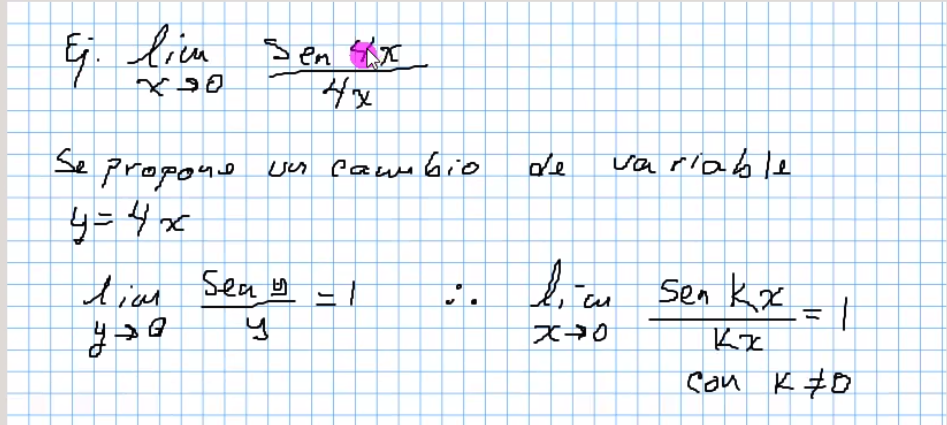 Ej. lim x→0 Sen 4x / 4x
Se propone un cambio de variable
y = 4x
lim y→0 Sen y / y = 1 ∴ lim x→0 Sen kx / kx = 1
con k ≠ 0